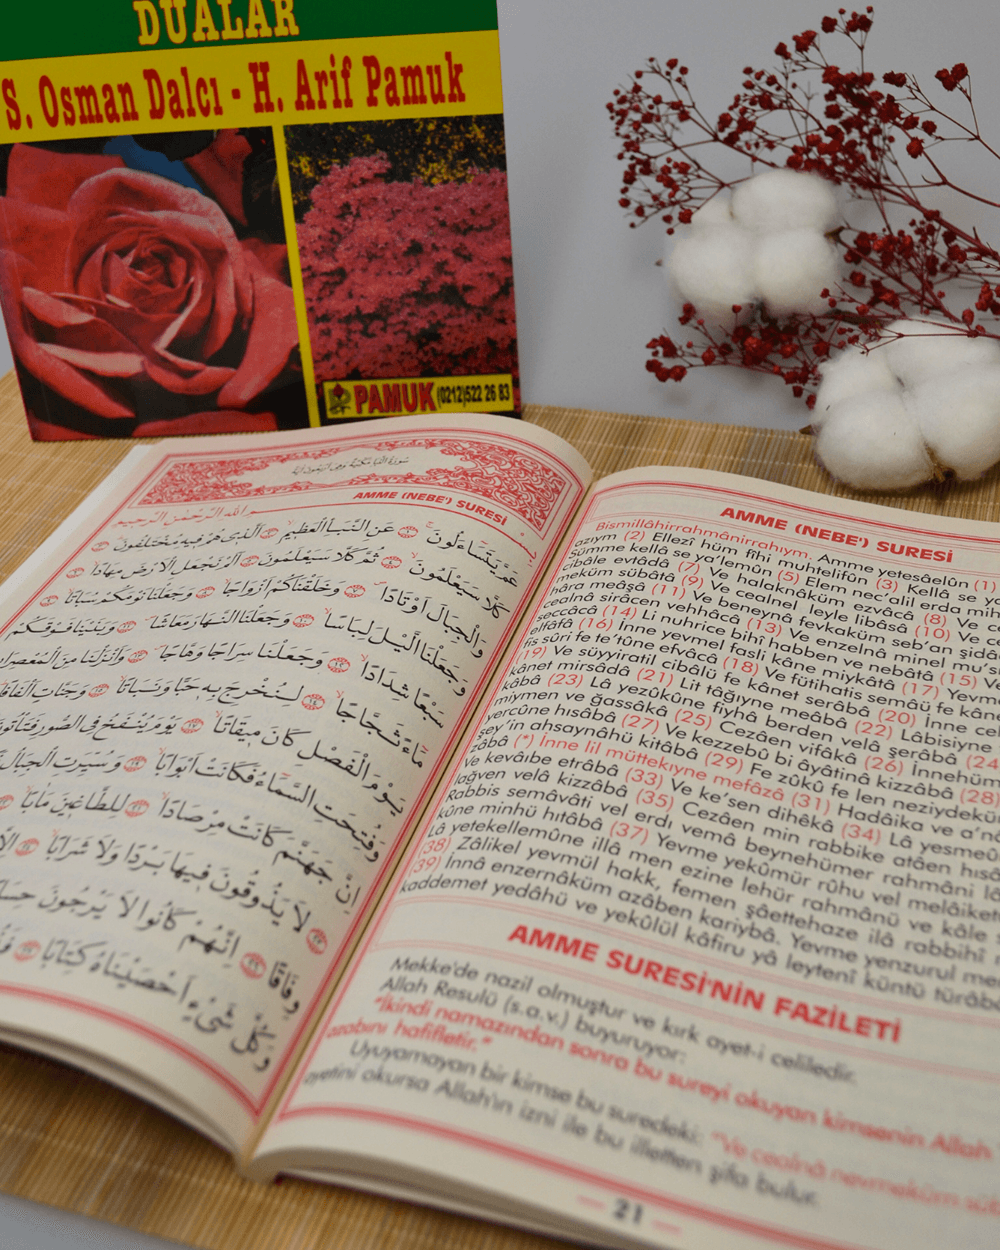 DUALAR
S. Osman Dalcı - H. Arif Pamuk
PAMUK (0212)522 26 83
سُورَةُ النَّبَأِ مَكِّيَّةٌ وَهِيَ اَرْبَعُونَ اٰيَةً
AMME (NEBE') SURESİ
بِسْــمِ اللّٰهِ الرَّحْمٰنِ الرَّحِيمِ
عَمَّ يَتَسَاءَلُونَ ﴿١﴾ عَنِ النَّبَاِ الْعَظِيمِ ﴿٢﴾ اَلَّذِى هُمْ فِيهِ مُخْتَلِفُونَ ﴿٣﴾
كَلَّا سَيَعْلَمُونَ ﴿٤﴾ ثُمَّ كَلَّا سَيَعْلَمُونَ ﴿٥﴾ اَلَمْ نَجْعَلِ الْاَرْضَ مِهَادًا ﴿٦﴾
وَالْجِبَالَ اَوْتَادًا ﴿٧﴾ وَخَلَقْنَاكُمْ اَزْوَاجًا ﴿٨﴾ وَجَعَلْنَا نَوْمَكُمْ سُبَاتًا ﴿٩﴾
وَجَعَلْنَا الَّيْلَ لِبَاسًا ﴿١٠﴾ وَجَعَلْنَا النَّهَارَ مَعَاشًا ﴿١١﴾ وَبَنَيْنَا فَوْقَكُمْ
سَبْعًا شِدَادًا ﴿١٢﴾ وَجَعَلْنَا سِرَاجًا وَهَّاجًا ﴿١٣﴾ وَاَنْزَلْنَا مِنَ الْمُعْصِرَاتِ
مَاءً ثَجَّاجًا ﴿١٤﴾ لِنُخْرِجَ بِهِ حَبًّا وَنَبَاتًا ﴿١٥﴾ وَجَنَّاتٍ اَلْفَافًا
يَوْمَ الْفَصْلِ كَانَ مِيقَاتًا ﴿١٧﴾ يَوْمَ يُنْفَخُ فِى الصُّورِ فَتَأْتُونَ
وَفُتِحَتِ السَّمَاءُ فَكَانَتْ اَبْوَابًا ﴿١٩﴾ وَسُيِّرَتِ الْجِبَالُ
اِنَّ جَهَنَّمَ كَانَتْ مِرْصَادًا ﴿٢١﴾ لِلطَّاغِينَ مَاٰبًا
لَا يَذُوقُونَ فِيهَا بَرْدًا وَلَا شَرَابًا ﴿٢٤﴾
وِفَاقًا ﴿٢٦﴾ اِنَّهُمْ كَانُوا لَا يَرْجُونَ
وَكُلَّ شَىْءٍ اَحْصَيْنَاهُ كِتَابًا ﴿٢٩﴾
AMME (NEBE') SURESİ
Bismillâhirrahmânirrahıym. Amme yetesâelûn (1)
azıym (2) Ellezî hüm fîhi muhtelifûn (3) Kellâ se
Sümme kellâ se ya'lemûn (5) Elem nec'alil erda
cibâle evtâdâ (7) Ve halaknâküm ezvâcâ (8) Ve
meküm sübâtâ (9) Ve cealnel leyle libâsâ (10) Ve
hâra meâşâ (11) Ve beneynâ fevkaküm seb'an
cealnâ sirâcen vehhâcâ (13) Ve enzelnâ minel
seccâcâ (14) Li nuhrice bihî habben ve nebâtâ (15)
elfâfâ (16) İnne yevmel fasli kâne miykâtâ (17)
fis sûri fe te'tûne efvâcâ (18) Ve fütihatis semâü
(19) Ve süyyiratil cibâlü fe kânet serâbâ (20) İnne
kânet mirsâdâ (21) Lit tâğıyne meâbâ (22) Lâbisiyne
kâbâ (23) Lâ yezûkûne fiyhâ berden velâ şerâbâ (24)
miymen ve ğassâkâ (25) Cezâen vifâkâ (26) İnnehüm
yercûne hısâbâ (27) Ve kezzebû bi âyâtinâ kizzâbâ (28)
şey'in ahsaynâhü kitâbâ (29) Fe zûkû fe len
zâbâ (*) İnne lil müttekıyne mefâzâ (31) Hadâika ve
Ve kevâıbe etrâbâ (33) Ve ke'sen dihêkâ (34) Lâ
lağven velâ kizzâbâ (35) Cezâen min rabbike atâen
Rabbis semâvâti vel erdı vemâ beynehümer rahmâni
kûne minhü hıtâbâ (37) Yevme yekûmür rûhu vel
Lâ yetekellemûne illâ men ezine lehür rahmânü ve kâle
(38) Zâlikel yevmül hakk, femen şâettehaze ilâ rabbihî
(39) İnnâ enzernâküm azâben kariybâ. Yevme yenzurul
kaddemet yedâhü ve yekûlül kâfiru yâ leytenî küntü
AMME SURESİ'NİN FAZİLETİ
Mekke'de nazil olmuştur ve kırk ayet-i celiledir.
Allah Resulü (s.a.v.) buyuruyor:
"İkindi namazından sonra bu sureyi okuyan kimsenin Allah
azabını hafifletir."
Uyuyamayan bir kimse bu suredeki: "Ve cealnâ nevmeküm
ayetini okursa Allah'ın izni ile bu illetten şifa bulur.
21